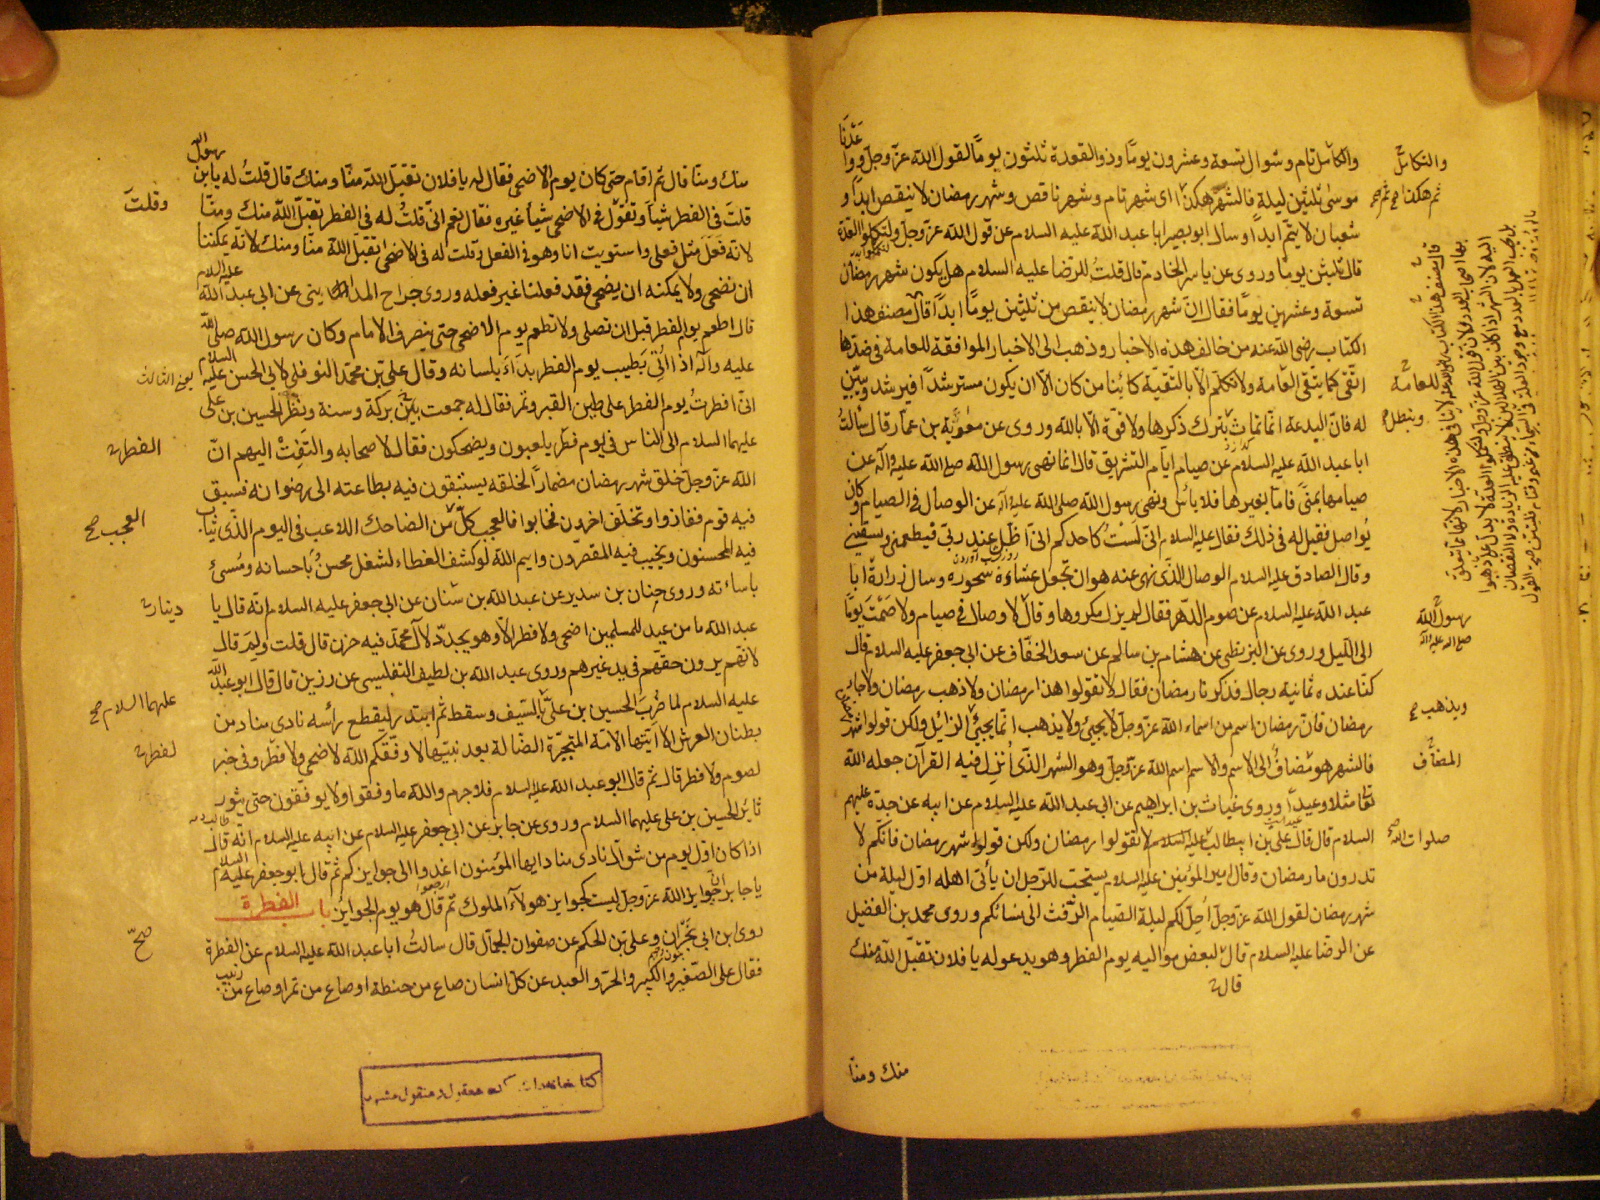 والكامل تام وشوال تسعة وعشرون يومًا وذو القعدة ثلثون يومًا لقول الله عزّ وجلّ ووا
عَدْنا
موسى ثلثين ليلة فالشهر هكذا اى شهر تام وشهر ناقص وشهر رمضان لا ينقص ابدًا و
شعبان لا يتمّ ابدًا وسال ابو بصير ابا عبد الله عليه السلام عن قول الله عزّ وجلّ ولتكملوا العدّة
قال ثلثين يومًا وروى عن ياسر الخادم قال قلتُ للرّضا عليه السلام هل يكون شهر رمضان
تسعة وعشرين يومًا فقال انّ شهر رمضان لا ينقص من ثلثين يومًا ابدًا قال مصنف هذا
الكتاب رضى الله عنه من خالف هذه الاخبار وذهب الى الاخبار الموافقة للعامة فى ضدّها
اتّقى كما يتّقى العامة ولا تكلّم الّا بالتّقيّة كائنا من كان الّا ان يكون مسترشدًا فيرشد ويبيّن
له فان البدعة انما تماث بترك ذكرها ولا قوّة الّا بالله وروى عن معوية بن عمار قال سالتُ
ابا عبد الله عليه السلام عن صيام ايّام التشريق قال انما نهى رسول الله صلى الله عليه واله عن
صيامها بمنىً فامّا بغيرها فلا باس ونهى رسول الله صلى الله عليه وآله عن الوصال فى الصيام وكان
يُواصل فقيل له فى ذلك فقال عليه السلام انّى لستُ كاحدكم انّى اظلّ عند ربّى فيطعمنى ويسقينى
وقال الصادق عليه السلام الوصال الذّى نهى عنه هو ان يجعل عشاءه سحوره وسال زرارة ابا
عبد الله عليه السلام عن صوم الدّهر فقال لم يزل مكروها وقال لا وصال فى صيام ولا صَمْتَ يومًا
الى الليل وروى عن البزنطى عن هشام بن سالم عن سعد الخفّاف عن ابى جعفر عليه السلام قال
كنّا عنده ثمانية رجال فذكرنا رمضان فقال لا تقولوا هذا رمضان ولا ذهب رمضان ولا جاء
رمضان فانّ رمضان اسم من اسماء الله عزّ وجلّ لا يجيئ ولا يذهب انما يجيئ الزائل ولكن قولوا شهر
رمضان
فالشهر هو مُضافٌ الى الاسم والاسم اسم الله عزّ وجلّ وهو الشهر الذّى اُنزل فيه القرآن جعله الله
تعا مثلا وعيدًا وروى غياث بن ابراهيم عن ابى عبد الله عليه السلام عن ابيه عن جدّه عليهم
السلام قال قال علىّ بن ابيطالب عليه السلام لا تقولوا رمضان ولكن قولوا شهر رمضان فانّكم لا
تدرون ما رمضان وقال امير المؤمنين عليه السلام يستحبّ للرّجل ان يأتى اهله اوّل ليلة من
شهر رمضان لقول الله عزّ وجلّ اُحِلّ لكم ليلة الصّيام الرّفث الى نسائكم وروى محمد بن الفضيل
عن الرّضا عليه السلام قال لبعض مواليه يوم الفطر وهو يدعو له يا فلان تقبّل الله منك
قال
منك ومنّا
والكامل
ثم هكذا
للعامّة
وبنطل
رسول الله
صلى الله عليه وآله
ويذهب
المضاف
صلوات الله
منك ومنّا قال ثم اقام حتى كان يوم الاضحى فقال له يا فلان تقبّل الله منّا ومنك قال قلتُ له يا بن
رسول الله
قلتَ فى الفطر شيأ وتقول فى الاضحى شيأ غيره فقال نعم انّى قلتُ له فى الفطر تقبّل الله منك ومنّا
لانّه فَعَل مثل فعلى واستويت انا وهو فى الفعل وقلت له فى الاضحى تقبّل الله منّا ومنك لانّه يمكننا
ان نضحى ولا يمكنه ان يضحى فقد فعلنا غير فعله وروى جراح المداينى عن ابى عبد الله
عليه السلام
قال اطعم يوم الفطر قبل ان تصلى ولا تطعم يوم الاضحى حتى ينصرف الامام وكان رسول الله صلى الله
عليه وآله اذا اُتى بطيب يوم الفطر بدأ بلسانه وقال على بن محمّد النوفلى لابى الحسن عليه
السلام
انّى افطرتُ يوم الفطر على طين القبر وتمر فقال له جمعت بين بركة وسنة ونظر الحسين بن على
عليهما السلام الى الناس فى يوم فطر يلعبون ويضحكون فقال لاصحابه والتَفِتْ اليهم انّ
الله عزّ وجلّ خلق شهر رمضان مضمارًا لخلقه يستبقون فيه بطاعته الى رضوانه فسبق
فيه قوم ففازوا وتخلّف اخرون فخابوا فالعجب كلّ من الضاحك اللاعب فى اليوم الذّى يثاب
فيه المحسنون ويخيب فيه المقصرون وايم الله لو كشف الغطاء لشغل محسنٌ باحسانه ومُسئ
باساءته وروى حنان بن سدير عن عبد الله بن سنان عن ابى جعفر عليه السلام انّه قال يا
عبد الله ما من عيد للمسلمين اضحى ولا فطر الّا وهو يجدّد لال محمّد فيه حزن قال قلت ولِمَ قال
لانّهم يرون حقّهم فى يد غيرهم وروى عبد الله بن لطيف التفليسى عن رزين قال قال ابو عبد الله
عليه السلام لما ضُرِبَ الحسين بن علىّ بالسّيف وسقط ثم ابتدر ليقطع رأسه نادى مناد من
بطنان العرش الا ايّتها الامّة المتحيّرة الضّالة بعد نبيّها لا وفّقكم الله لاضحى ولا فطر وفى خبر
لصوم ولا فطر قال ثم قال ابو عبد الله عليه السلام فلا جرم والله ما وفقوا ولا يوفقون حتى يثور
ثائر الحسين بن على عليهما السلام وروى عن جابر عن ابى جعفر عليه السلام عن ابيه عليه السلام انّه قال
اذا كان اوّل يوم من شوال نادى مناد ايها المؤمنون اغدوا الى جوايزكم ثم قال ابو جعفر عليه السلام
يا جابر جوايز الله عزّ وجلّ ليست كجوايز هولآء الملوك ثم قال هو يوم الجوايز باب الفطرة
روى ابن ابى نجران وعلى بن الحكم عن صفوان الجمّال قال سالتُ ابا عبد الله عليه السلام عن الفطرة
فقال على الصّغير والكبير والحرّ والعبد عن كلّ انسان صاع من حنطة او صاع من تمر او صاع من
زبيب
وقلتَ
الفطر
العجب صح
دينار
عليهما السلام صح
لفطر
صحّ